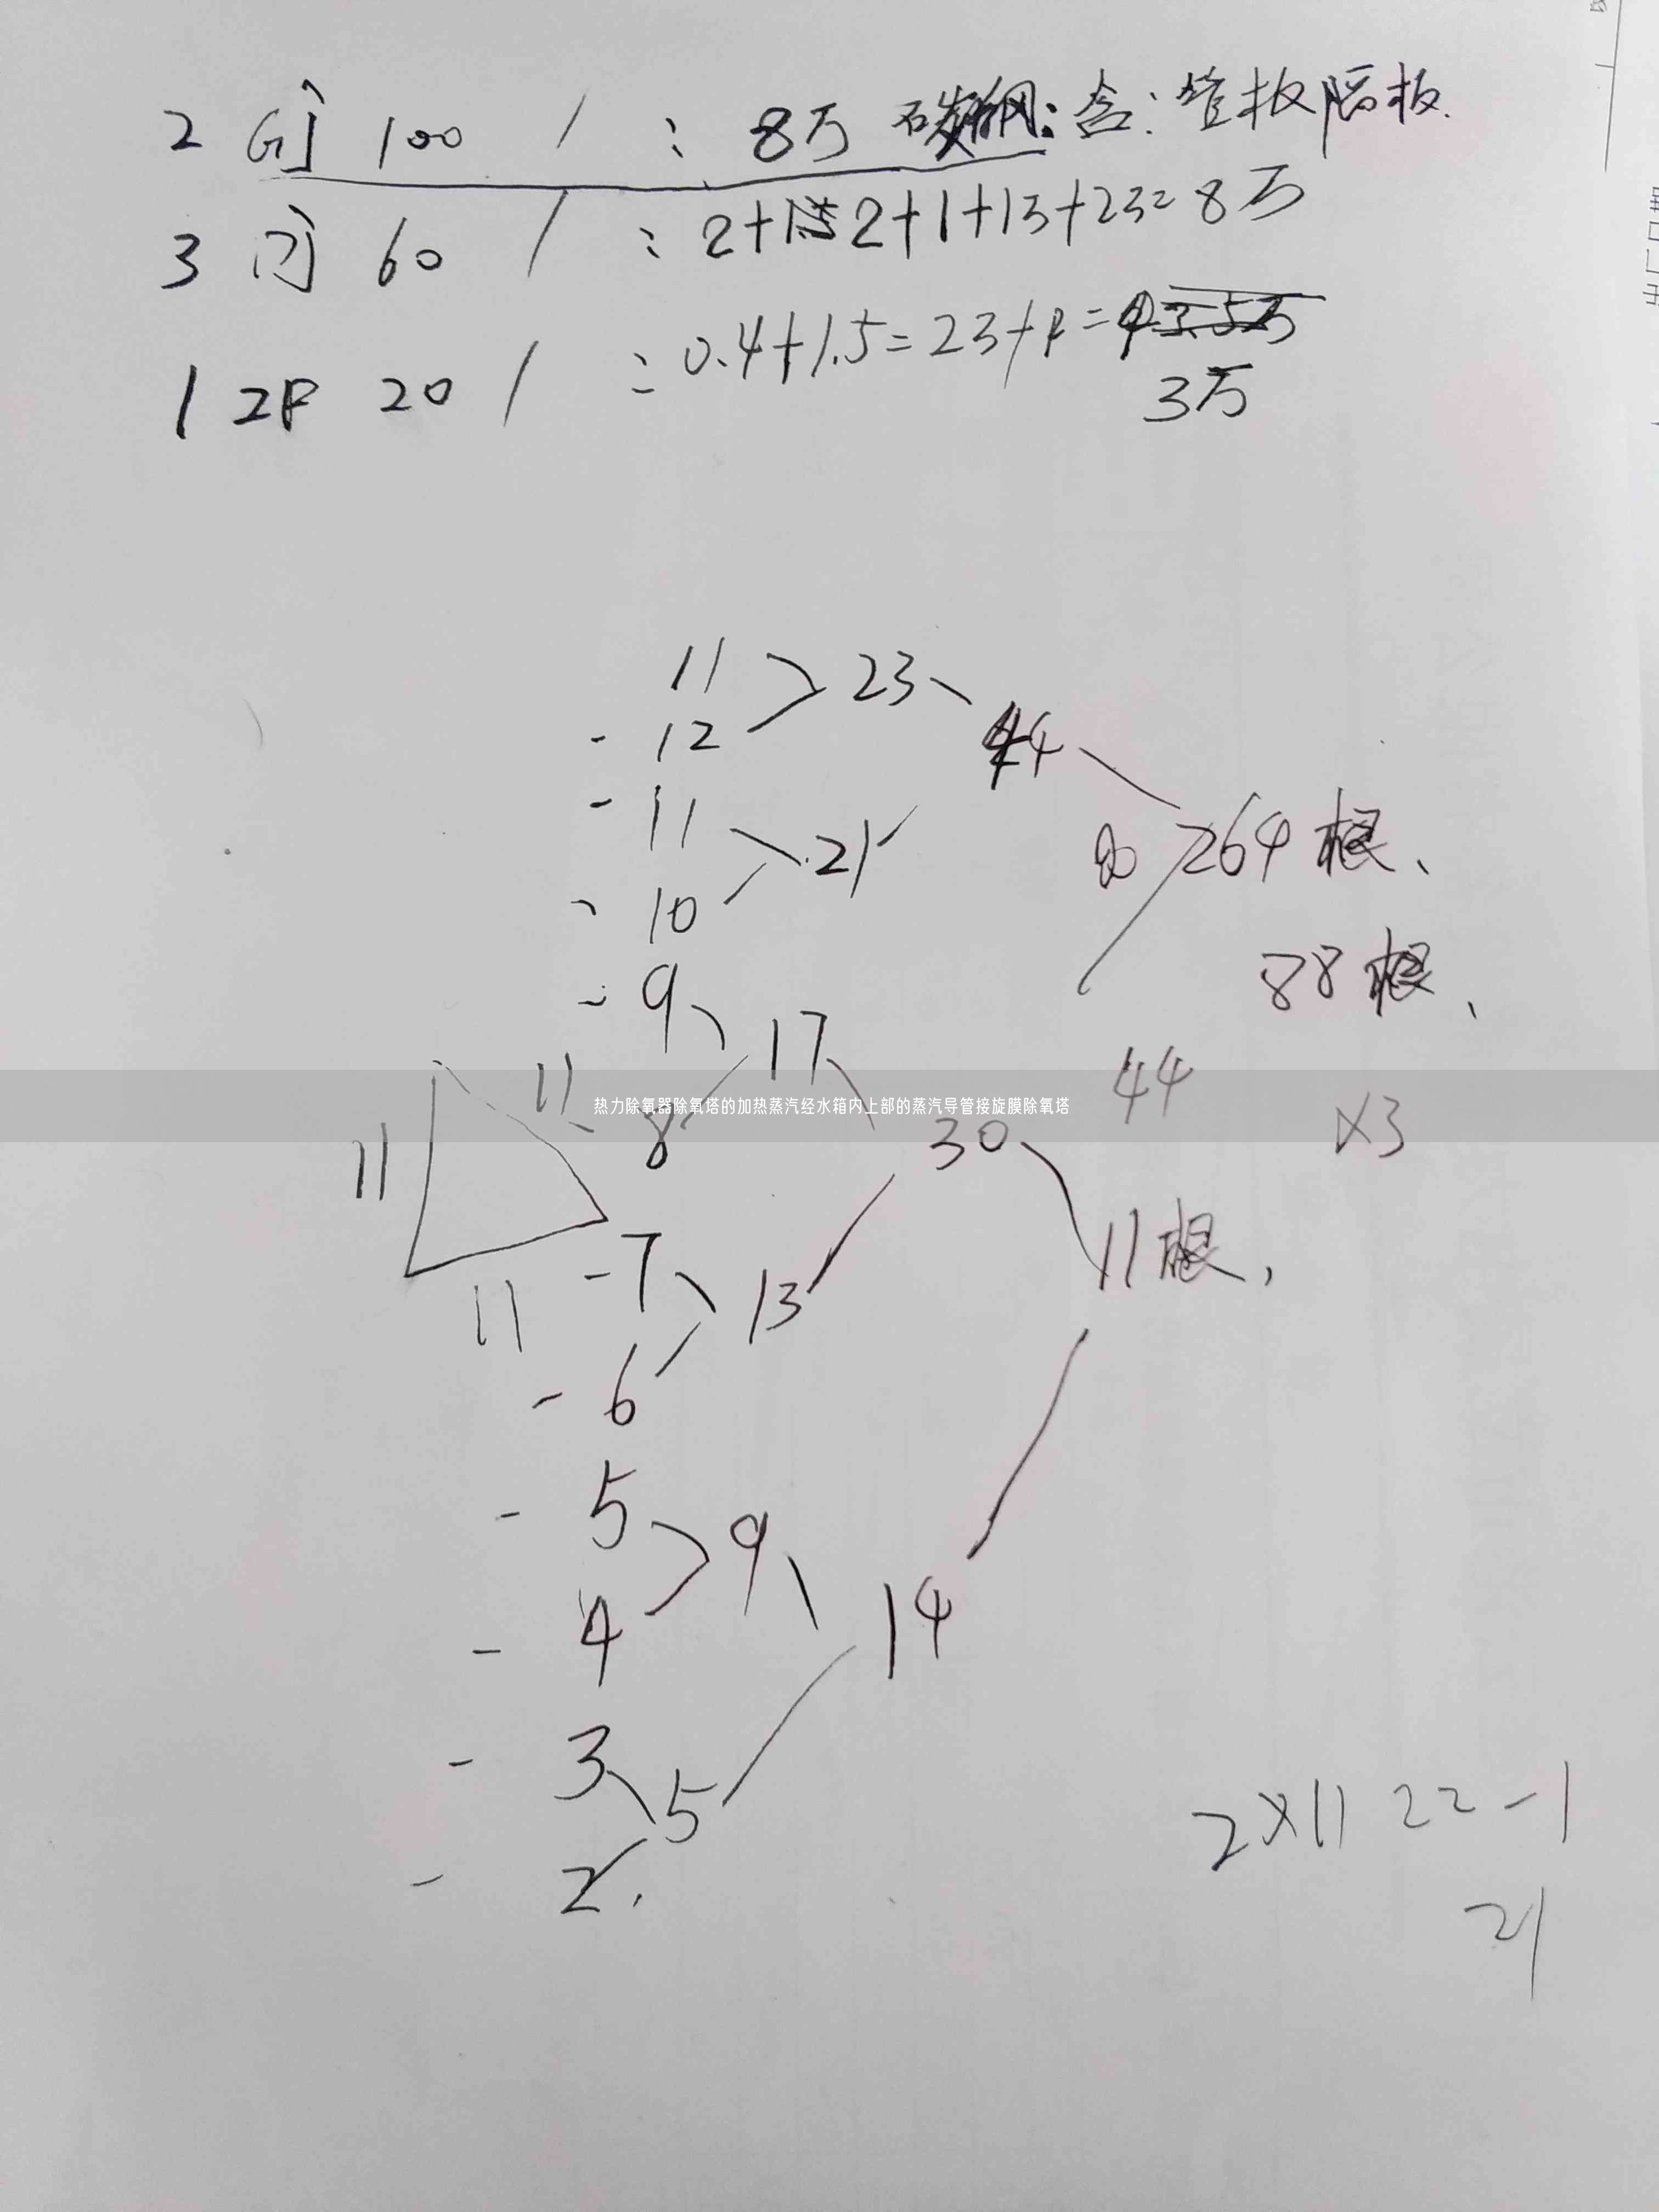 2 100 / : 8万 碳钢: 含: 管板隔板.
3 60 / : 2+1 2+1+13+23= 8万
1 ZF 20 / : 0.4+1.5=23+ =
3万
11 23
- 12
44
- 11 21
264根、
- 10
- 9
88根、
17
11 8
44
×3
热力除氧器除氧塔的加热蒸汽经水箱内上部的蒸汽导管接旋膜除氧塔
30
11
11根,
-7 13
11
- 6
- 5 9
- 4 14
- 3
5
2×11 22-1
- 2.
21